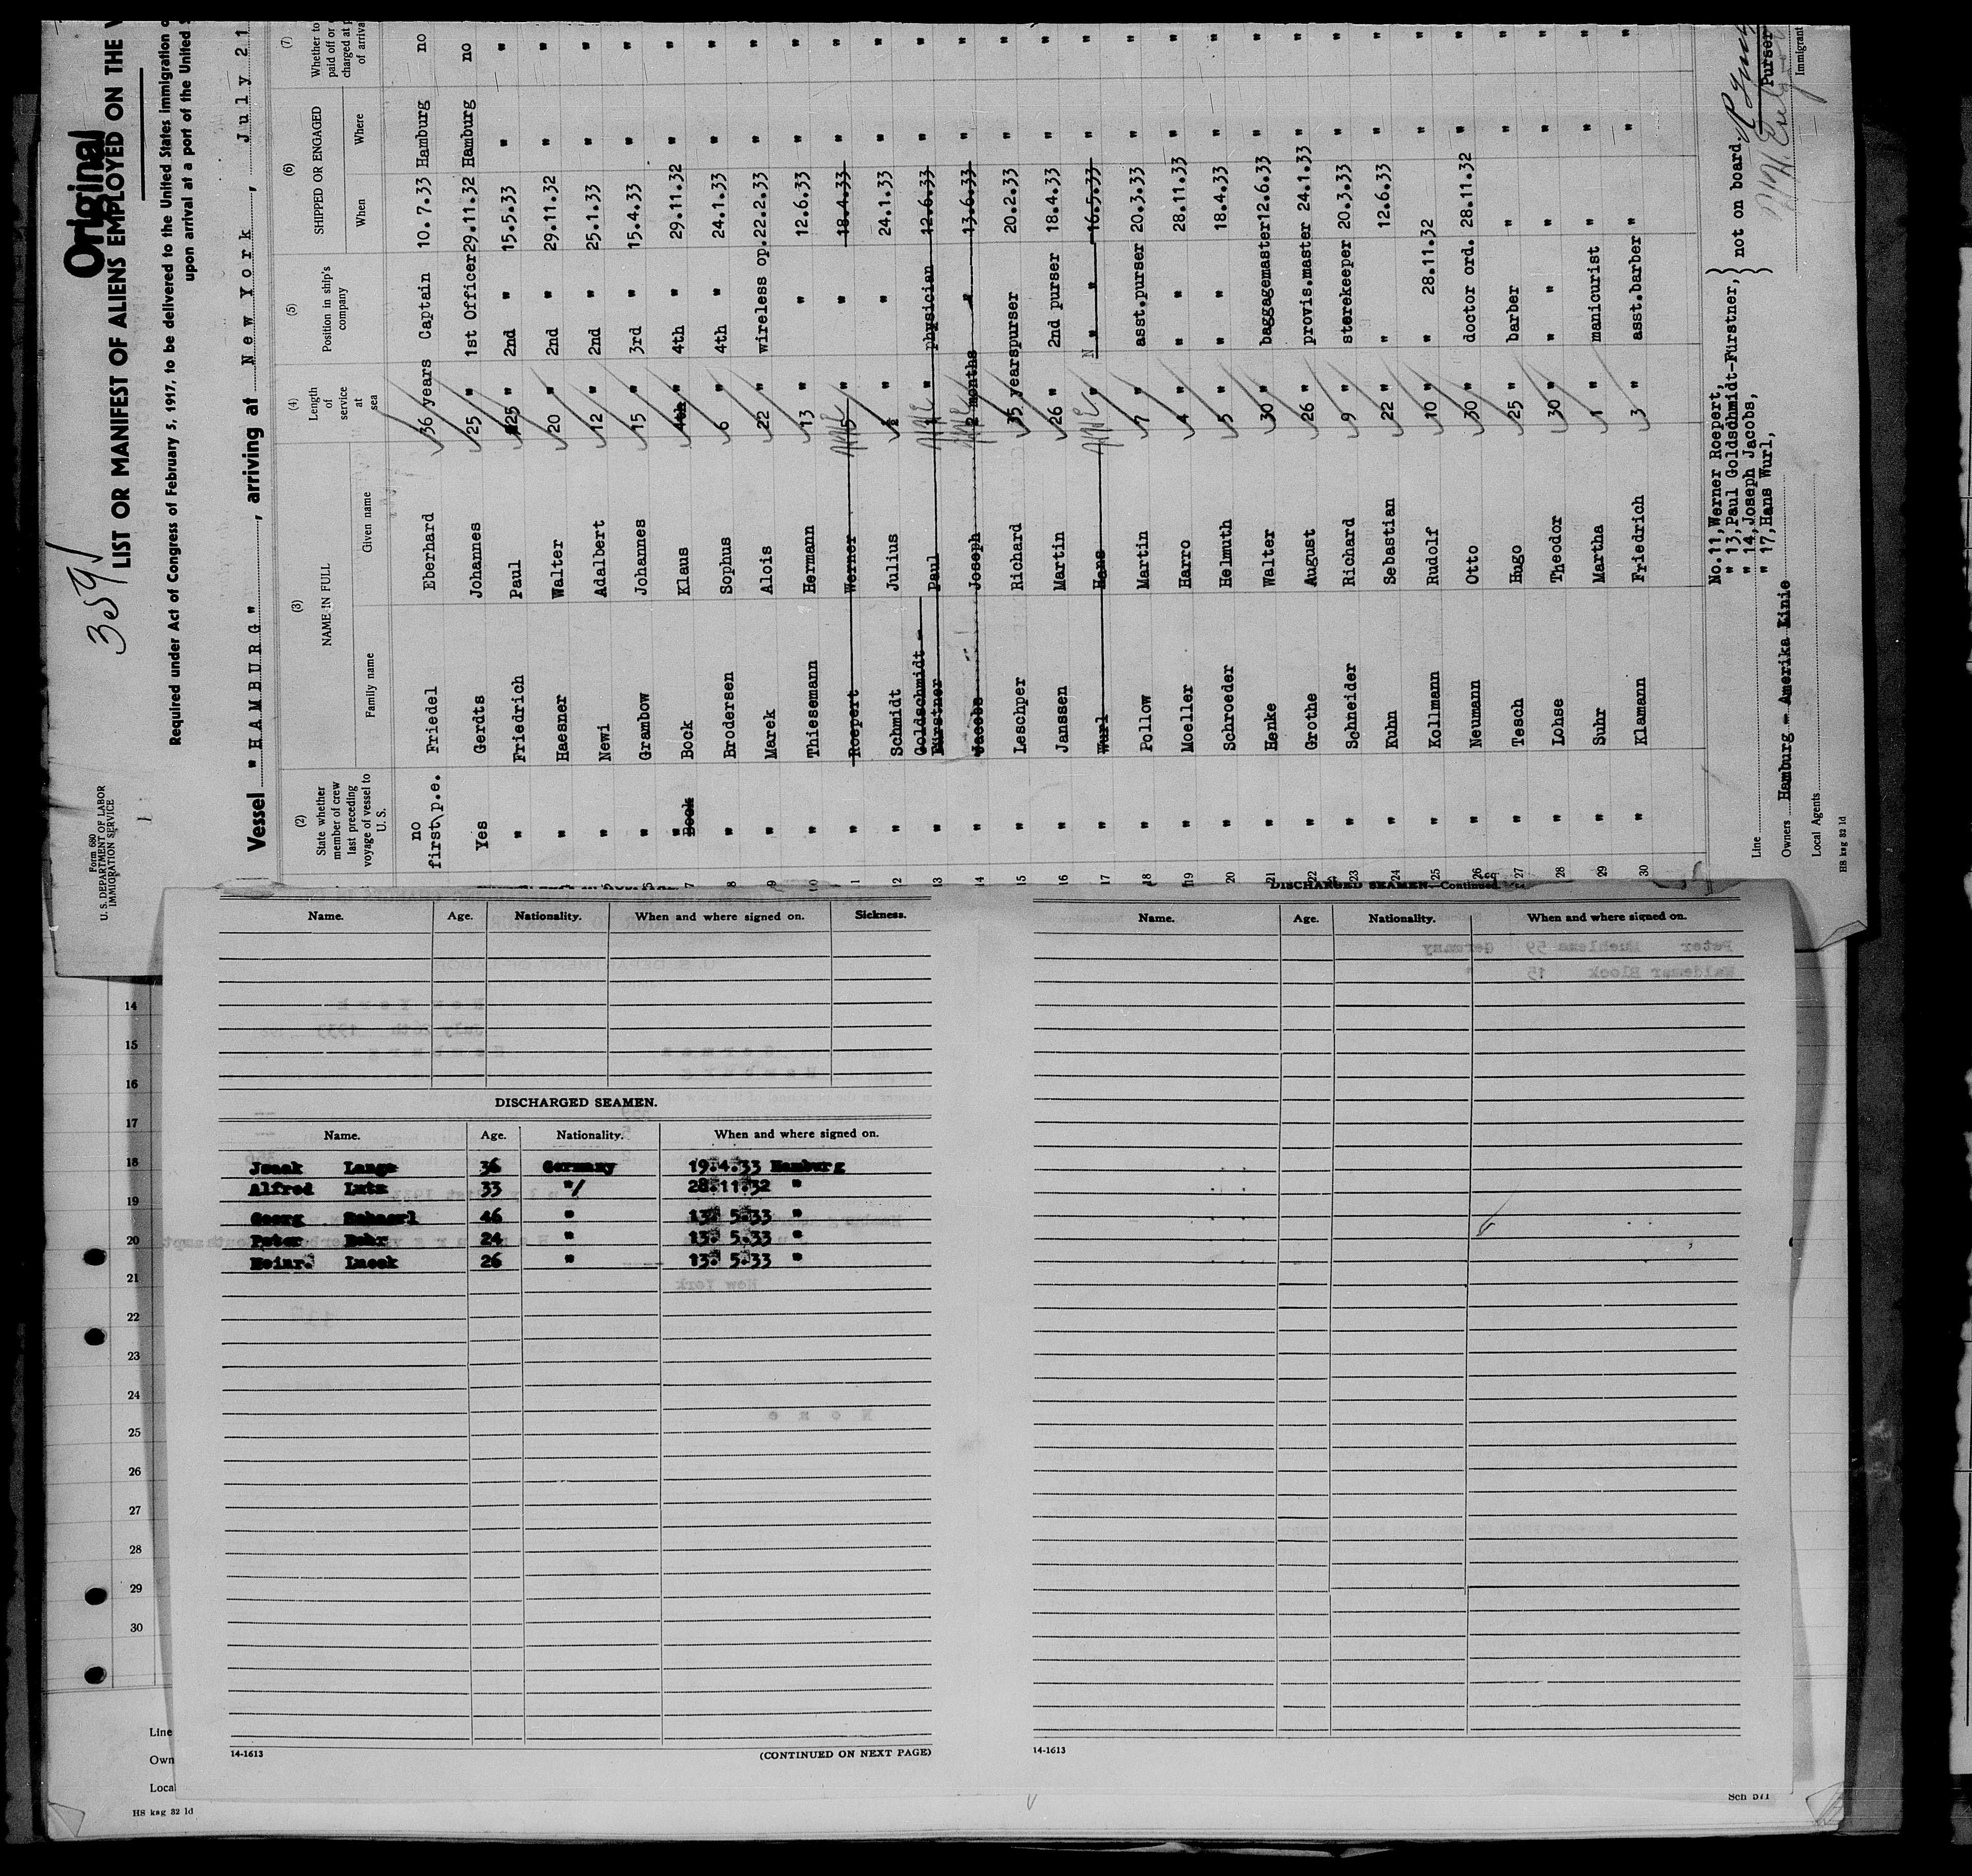 Original
3059
LIST OR MANIFEST OF ALIENS EMPLOYED ON THE
Form 680
U. S. DEPARTMENT OF LABOR
IMMIGRATION SERVICE
Required under Act of Congress of February 5, 1917, to be delivered to the United States immigration
upon arrival at a port of the United
Vessel "HAMBURG", arriving at New York, July 21
(2) (3) (4) (5) (6) (7)
State whether member of crew last preceding voyage of vessel to U. S. NAME IN FULL Length of service at sea Position in ship's company SHIPPED OR ENGAGED Whether to paid off or charged at of arrival
Family name Given name When Where
no first p.e. Friedel Eberhard 36 years Captain 10.7.33 Hamburg no
Yes Gerdts Johannes 25 " 1st Officer 29.11.32 Hamburg no
" Friedrich Paul 25 " 2nd " 15.5.33 " "
" Haesner Walter 20 " 2nd " 29.11.32 " "
" Newi Adalbert 12 " 2nd " 25.1.33 " "
" Grambow Johannes 15 " 3rd " 15.4.33 " "
7 " Bock Bock Klaus 4th " 4th " 29.11.32 " "
8 " Brodersen Sophus 6 " 4th " 24.1.33 " "
9 " Marek Alois 22 " wireless op. 22.2.33 " "
10 " Thiesemann Hermann 13 " " 12.6.33 " "
1 " Roepert Werner 5 " " 18.4.33 " "
12 " Schmidt Julius " " 24.1.33 " "
13 " Goldschmidt - Fürstner Paul 1 " physician 12.6.33 " "
14 " Jacobs Joseph 2 months " 13.6.33 " "
15 " Leschper Richard 35 years purser 20.2.33 " "
16 " Janssen Martin 26 " 2nd purser 18.4.33 " "
17 " Wurl Hans " N " " 16.5.33 " "
18 " Pollow Martin 7 " asst.purser 20.3.33 " "
19 " Moeller Harro 4 " " 28.11.33 " "
20 " Schroeder Helmuth 5 " " 18.4.33 " "
21 " Henke Walter 30 " baggagemaster 12.6.33 " "
22 " Grothe August 26 " provis.master 24.1.33 " "
23 " Schneider Richard 9 " sterekeeper 20.3.33 " "
24 " Kuhn Sebastian 22 " " 12.6.33 " "
25 " Kollmann Rudolf 10 " " 28.11.32 " "
26 " Neumann Otto 30 " doctor ord. 28.11.32 " "
27 " Tesch Hugo 25 " barber " " "
28 " Lohse Theodor 30 " " " " "
29 " Suhr Martha 1 " manicurist " " "
30 " Klamann Friedrich 3 " asst.barber " " "
No.11,Werner Roepert,
" 13,Paul Goldschmidt-Fürstner,
" 14,Joseph Jacobs,
" 17,Hans Wurl,
} not on board.
Purser
Immigrant
Line
Owners Hamburg - Amerika Linie
Local Agents
HS ksg 32 1d
Name. Age. Nationality. When and where signed on. Sickness.
DISCHARGED SEAMEN.
Name. Age. Nationality. When and where signed on.
Isaak Lange 36 Germany 19.4.33 Hamburg
Alfred Lutz 33 "/ 28.11.32 "
Georg 46 " 13. 5.33 "
Peter Behr 24 " 13. 5.33 "
Heinr. 26 " 13. 5.33 "
14-1613 (CONTINUED ON NEXT PAGE)
DISCHARGED SEAMEN—Continued
Name. Age. Nationality. When and where signed on.
Peter Muehlens 59 Germany
Waldemar Block 15 "
14-1613
Sch 571
14
15
16
17
18
19
20
21
22
23
24
25
26
27
28
29
30
Line
Own
Local
HS ksg 32 1d